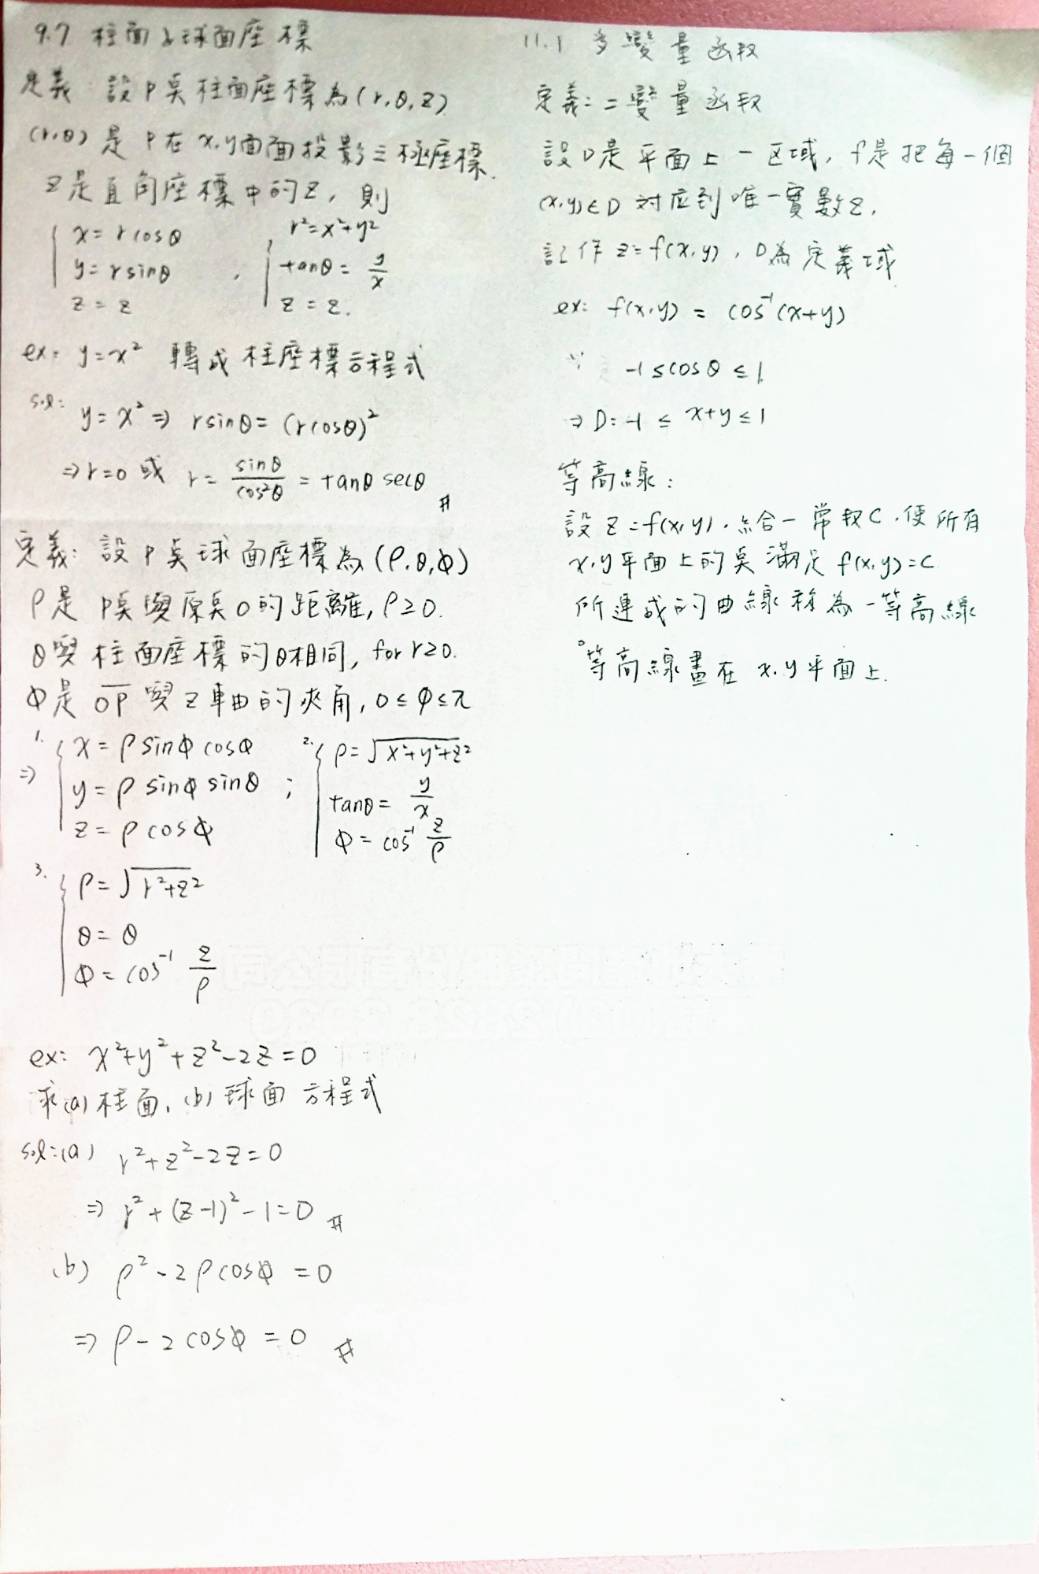 9.7 柱面与球面座標
定義: 設P點柱面座標為(r,θ,z)
(r,θ)是P在x,y面面投影之極座標.
z是直角座標中的z, 則
{ x = r cosθ , { r² = x²+y²
y = r sinθ tanθ = y/x
z = z z = z.
ex: y = x² 轉成柱座標方程式
sol: y = x² ⇒ r sinθ = (r cosθ)²
⇒ r=0 或 r = sinθ/cos²θ = tanθ secθ #
定義: 設P點球面座標為(ρ,θ,φ)
ρ是P點與原點O的距離, ρ≥0.
θ與柱面座標的θ相同, for r≥0.
φ是OP與z軸的夾角, 0≤φ≤π
⇒ 1. { x = ρ sinφ cosθ ; 2. { ρ = √(x²+y²+z²)
y = ρ sinφ sinθ tanθ = y/x
z = ρ cosφ φ = cos⁻¹ z/ρ
3. { ρ = √(r²+z²)
θ = θ
φ = cos⁻¹ z/ρ
ex: x²+y²+z²-2z=0
求(a)柱面, (b)球面方程式
sol:(a) r²+z²-2z=0
⇒ r²+(z-1)²-1=0 #
(b) ρ²-2ρcosφ=0
⇒ ρ-2cosφ=0 #
11.1 多變量函数
定義: 二變量函数
設D是平面上一区域, f是把每一個
(x,y)∈D 対应到唯一實數z,
記作 z=f(x,y), D為定義域
ex: f(x,y) = cos⁻¹(x+y)
∵ -1≤cosθ≤1
⇒ D: -1 ≤ x+y ≤ 1
等高線:
設z=f(x,y). 給一常数C, 使所有
x,y平面上的點滿足f(x,y)=C
所連成的曲線称為一等高線
°等高線畫在x,y平面上.